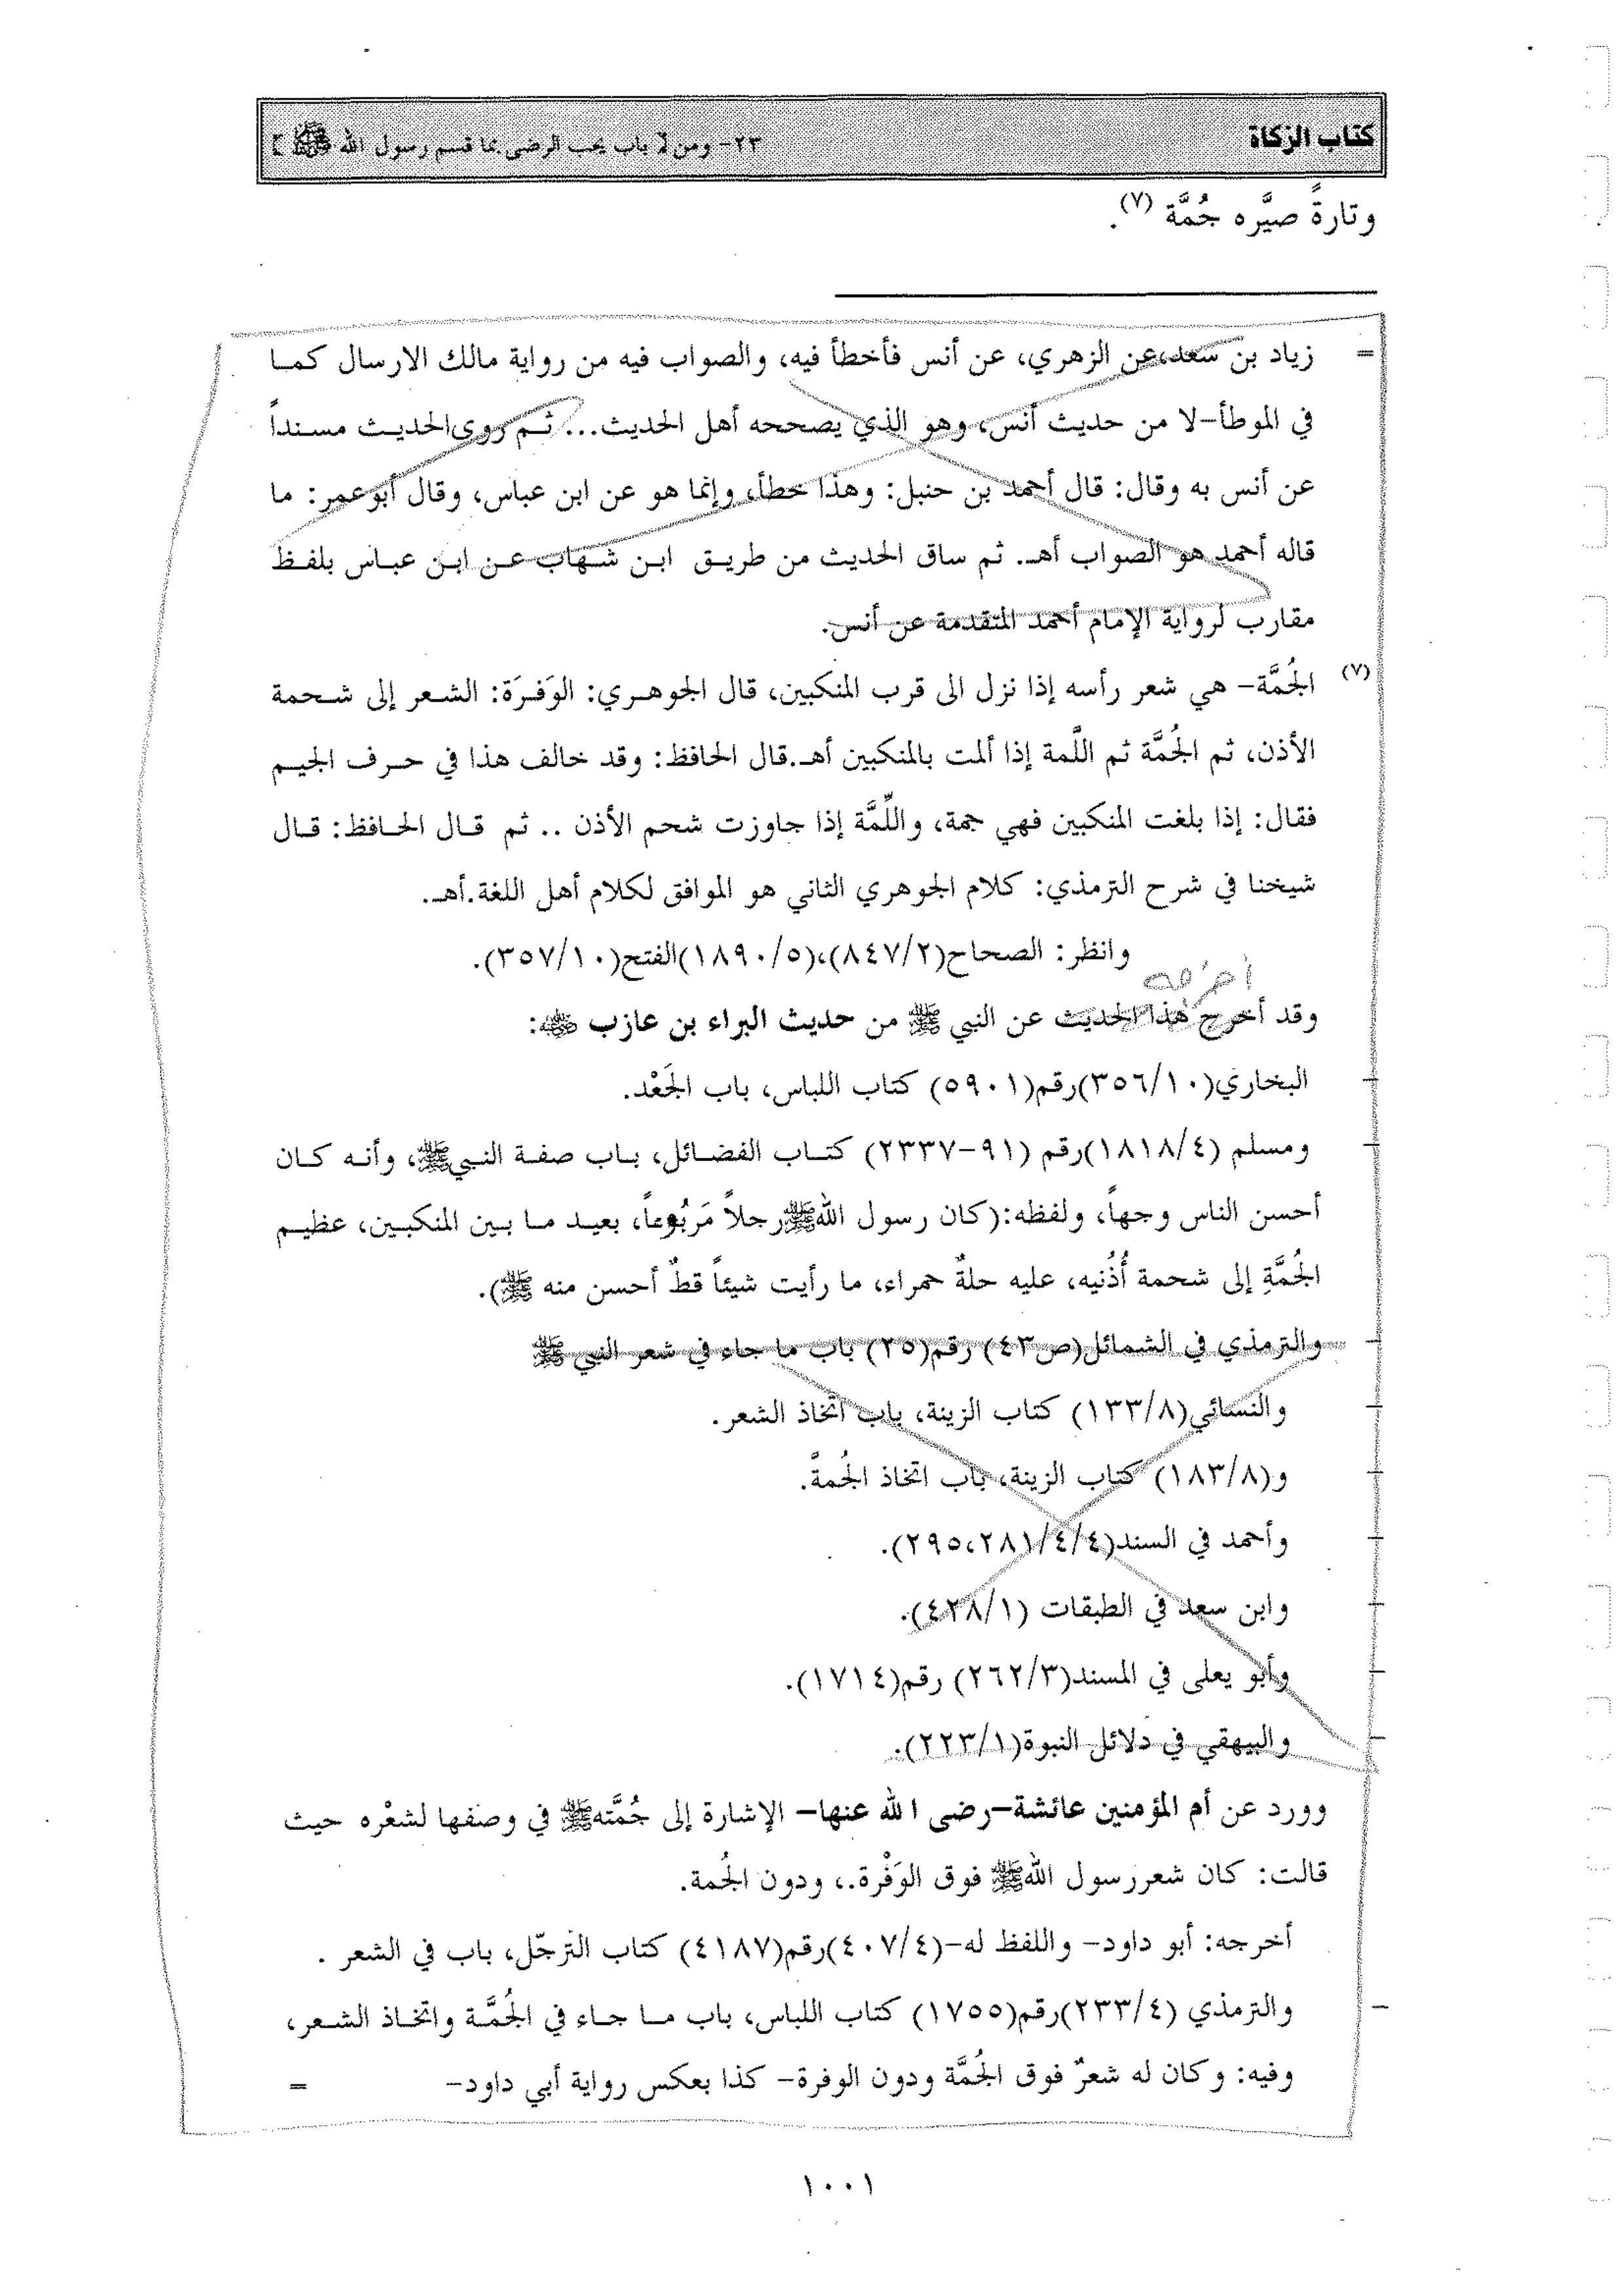 كتاب الزكاة
٢٣- ومن باب يجب الرضى بما قسم رسول الله ﷺ ]
وتارةً صيَّره جُمَّة (٧).
= زياد بن سعد،عن الزهري، عن أنس فأخطأ فيه، والصواب فيه من رواية مالك الارسال كما
في الموطأ-لا من حديث أنس، وهو الذي يصححه أهل الحديث... ثم روى الحديث مسنداً
عن أنس به وقال: قال أحمد بن حنبل: وهذا خطأ، وإنما هو عن ابن عباس، وقال أبوعمر: ما
قاله أحمد هو الصواب أهـ. ثم ساق الحديث من طريق ابن شهاب عن ابن عباس بلفظ
مقارب لرواية الإمام أحمد المتقدمة عن أنس.
(٧) الجُمَّة- هي شعر رأسه إذا نزل الى قرب المنكبين، قال الجوهري: الوَفرَة: الشعر إلى شحمة
الأذن، ثم الجُمَّة ثم اللَّمة إذا ألمت بالمنكبين أهـ.قال الحافظ: وقد خالف هذا في حرف الجيم
فقال: إذا بلغت المنكبين فهي جمة، واللِّمَّة إذا جاوزت شحم الأذن .. ثم قال الحافظ: قال
شيخنا في شرح الترمذي: كلام الجوهري الثاني هو الموافق لكلام أهل اللغة.أهـ.
وانظر: الصحاح(٨٤٧/٢)،(١٨٩٠/٥)الفتح(٣٥٧/١٠).
أخرجه
وقد أخرج هذا الحديث عن النبي ﷺ من حديث البراء بن عازب ﷺ:
- البخاري(٣٥٦/١٠)رقم(٥٩٠١) كتاب اللباس، باب الجَعْد.
- ومسلم (١٨١٨/٤)رقم (٩١-٢٣٣٧) كتاب الفضائل، باب صفة النبيﷺ، وأنه كان
أحسن الناس وجهاً، ولفظه:(كان رسول اللهﷺرجلاً مَربُوعاً، بعيد ما بين المنكبين، عظيم
الجُمَّةِ إلى شحمة أُذُنيه، عليه حلةٌ حمراء، ما رأيت شيئاً قطٌ أحسن منه ﷺ).
- والترمذي في الشمائل(ص٤٣) رقم(٢٥) باب ما جاء في شعر النبي ﷺ
- والنسائي(١٣٣/٨) كتاب الزينة، باب اتّخاذ الشعر.
- و(١٨٣/٨) كتاب الزينة، باب اتخاذ الجُمةَّ.
- وأحمد في السند(٤/٤/٢٩٥،٢٨١).
- وابن سعد في الطبقات (٤٢٨/١).
- وأبو يعلى في المسند(٢٦٢/٣) رقم(١٧١٤).
- والبيهقي في دلائل النبوة(٢٢٣/١).
وورد عن أم المؤمنين عائشة-رضى الله عنها- الإشارة إلى جُمَّتهﷺ في وصفها لشعْره حيث
قالت: كان شعررسول اللهﷺ فوق الوَفْرة.، ودون الجُمة.
أخرجه: أبو داود- واللفظ له-(٤٠٧/٤)رقم(٤١٨٧) كتاب الترجّل، باب في الشعر .
- والترمذي (٢٣٣/٤)رقم(١٧٥٥) كتاب اللباس، باب ما جاء في الجُمَّة واتخاذ الشعر،
وفيه: وكان له شعرٌ فوق الجُمَّة ودون الوفرة- كذا بعكس رواية أبي داود- =
١٠٠١